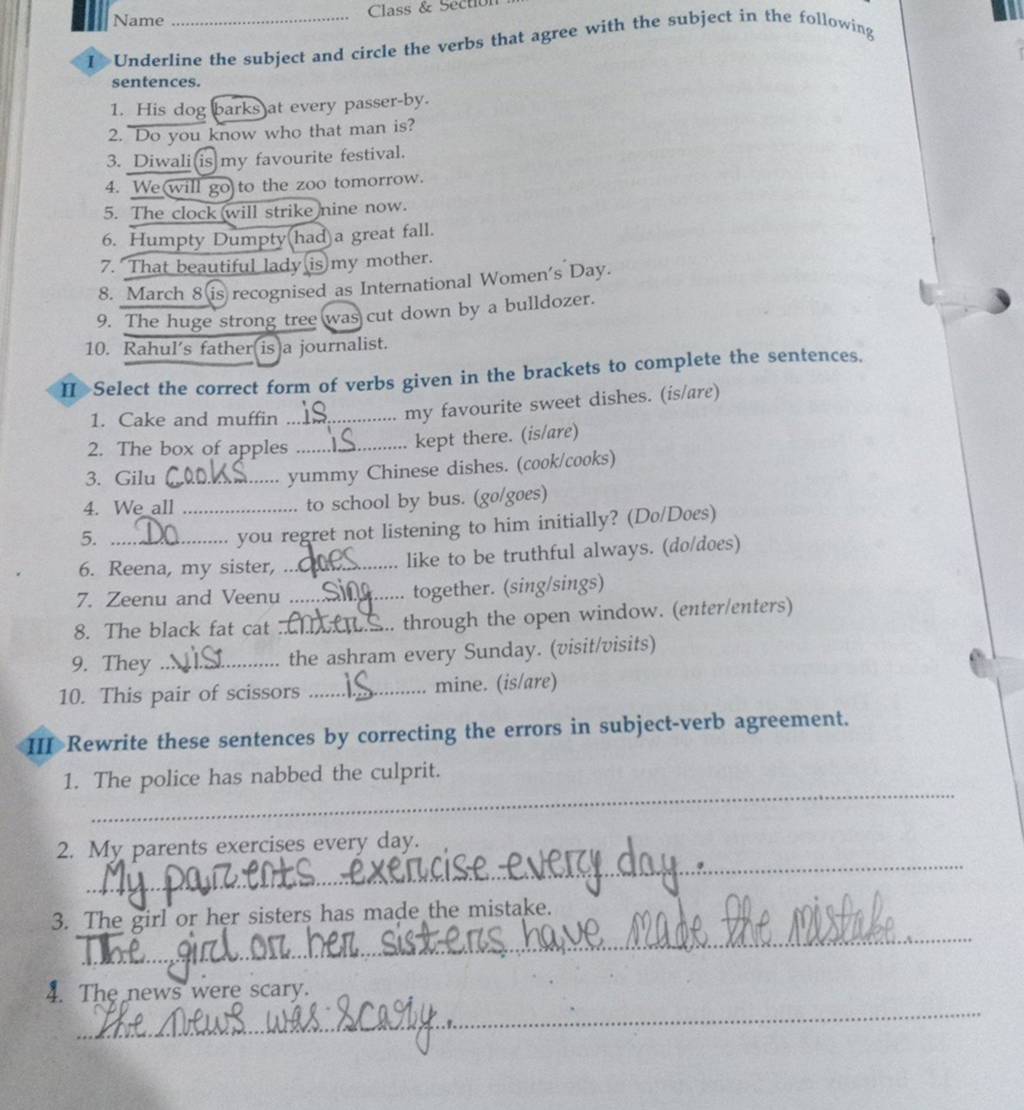 Name ........................ Class & Section ....
I Underline the subject and circle the verbs that agree with the subject in the following
sentences.
1. His dog barks at every passer-by.
2. Do you know who that man is?
3. Diwali is my favourite festival.
4. We will go to the zoo tomorrow.
5. The clock will strike nine now.
6. Humpty Dumpty had a great fall.
7. That beautiful lady is my mother.
8. March 8 is recognised as International Women's Day.
9. The huge strong tree was cut down by a bulldozer.
10. Rahul's father is a journalist.
II Select the correct form of verbs given in the brackets to complete the sentences.
1. Cake and muffin ...is............ my favourite sweet dishes. (is/are)
2. The box of apples .......is.......... kept there. (is/are)
3. Gilu cooks...... yummy Chinese dishes. (cook/cooks)
4. We all ..................... to school by bus. (go/goes)
5. ......Do.......... you regret not listening to him initially? (Do/Does)
6. Reena, my sister, ...does........ like to be truthful always. (do/does)
7. Zeenu and Veenu ......sing...... together. (sing/sings)
8. The black fat cat ..enters.. through the open window. (enter/enters)
9. They ..vist........... the ashram every Sunday. (visit/visits)
10. This pair of scissors .......is.......... mine. (is/are)
III Rewrite these sentences by correcting the errors in subject-verb agreement.
1. The police has nabbed the culprit.
2. My parents exercises every day.
My parents exercise every day.
3. The girl or her sisters has made the mistake.
The girl or her sisters have made the mistake.
4. The news were scary.
The news was scary.